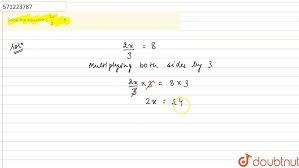 571223787
Solⁿ
2x/3 = 8
Multiplying both sides by 3
2x/3 × 3 = 8 × 3
2x = 24
doubtnut